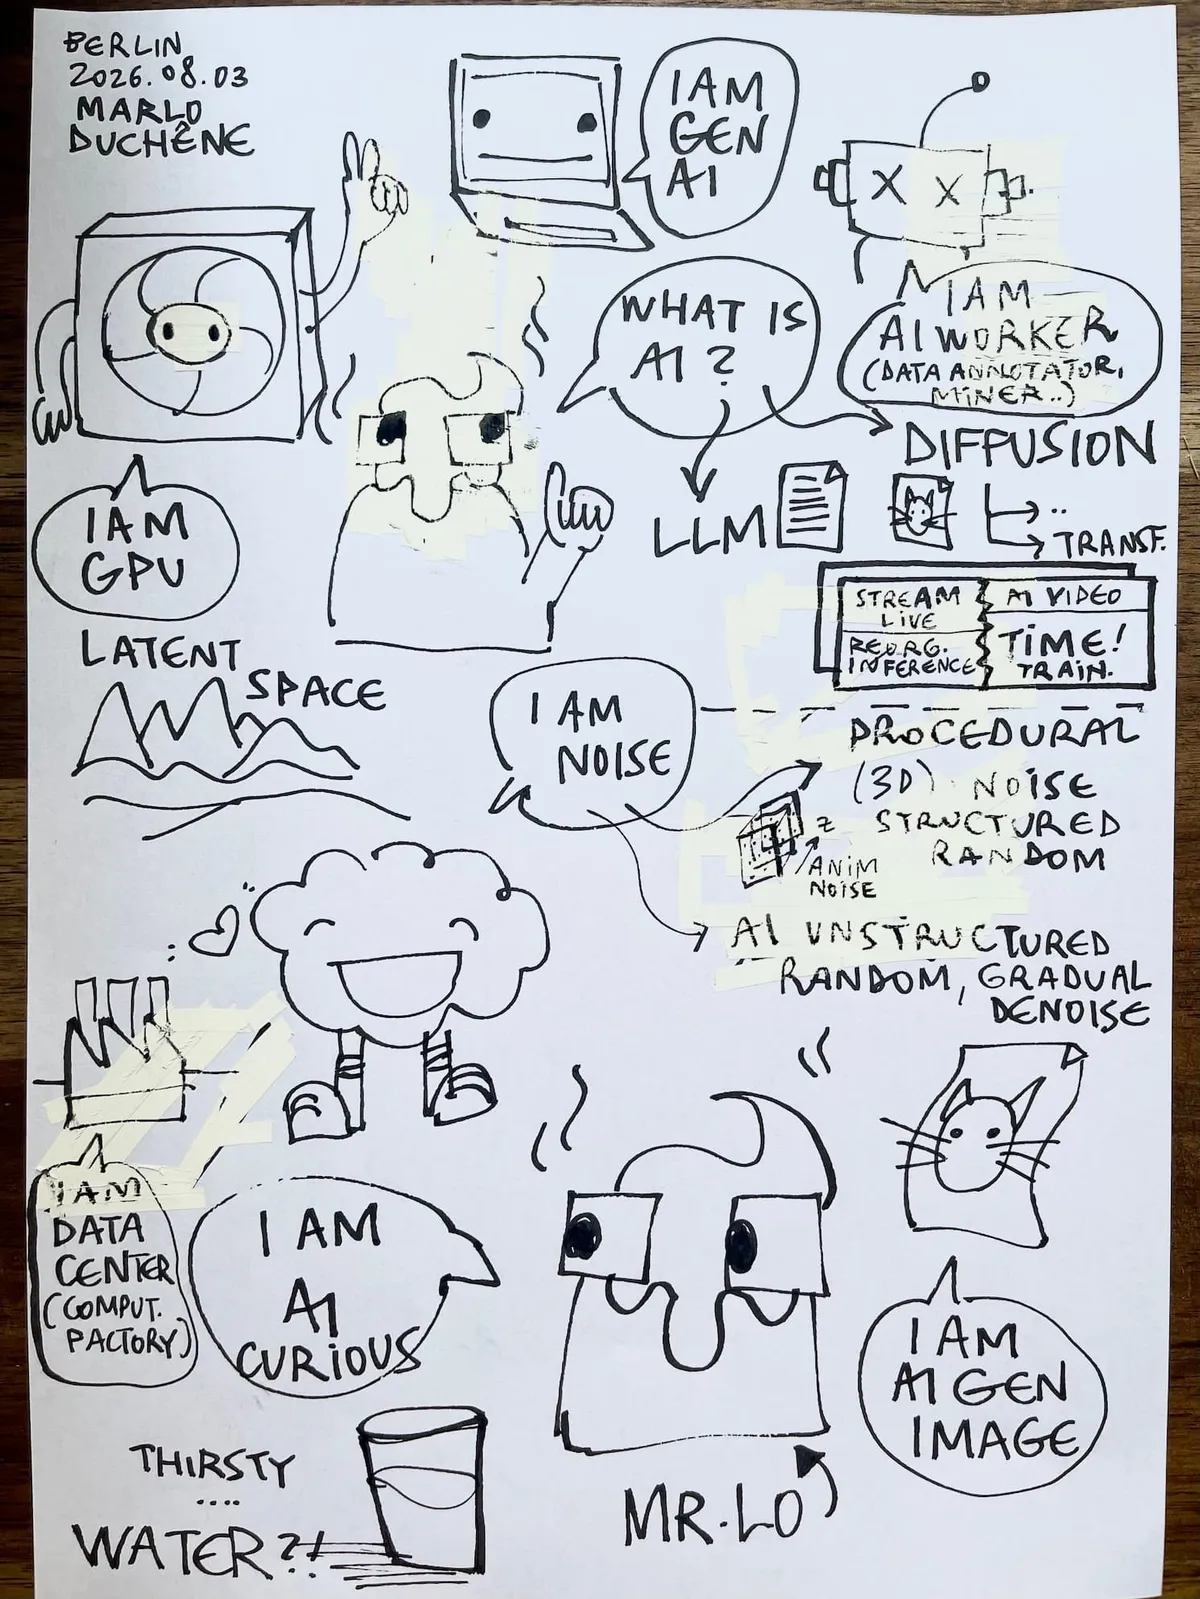 BERLIN
2026.08.03
MARLO
DUCHÊNE
I AM
GEN
AI
WHAT IS
AI?
I AM
AI WORKER
(DATA ANNOTATOR,
MINER..)
I AM
GPU
LLM
DIFFUSION
..
TRANSF.
STREAM
LIVE
AI VIDEO
REORG.
INFERENCE
TIME!
TRAIN.
LATENT
SPACE
I AM
NOISE
PROCEDURAL
(3D) NOISE
STRUCTURED
RANDOM
Z
ANIM
NOISE
AI UNSTRUCTURED
RANDOM, GRADUAL
DENOISE
I AM
DATA
CENTER
(COMPUT.
FACTORY)
I AM
AI
CURIOUS
I AM
AI GEN
IMAGE
THIRSTY
....
WATER?!
MR.LO